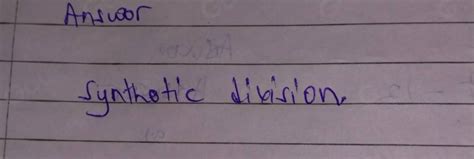 Answer
Synthetic division.